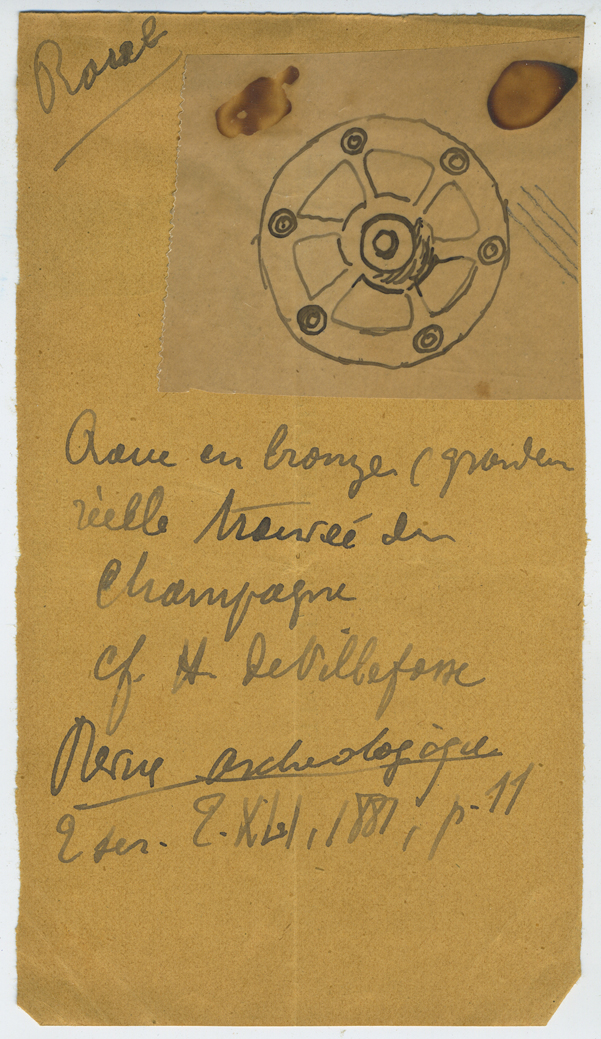 Roue en bronze (grandeur
réelle trouvée en
Champagne
cf. H. de Villefosse
Revue archéologique
2 ser. T. XLI, 1881, p. 11